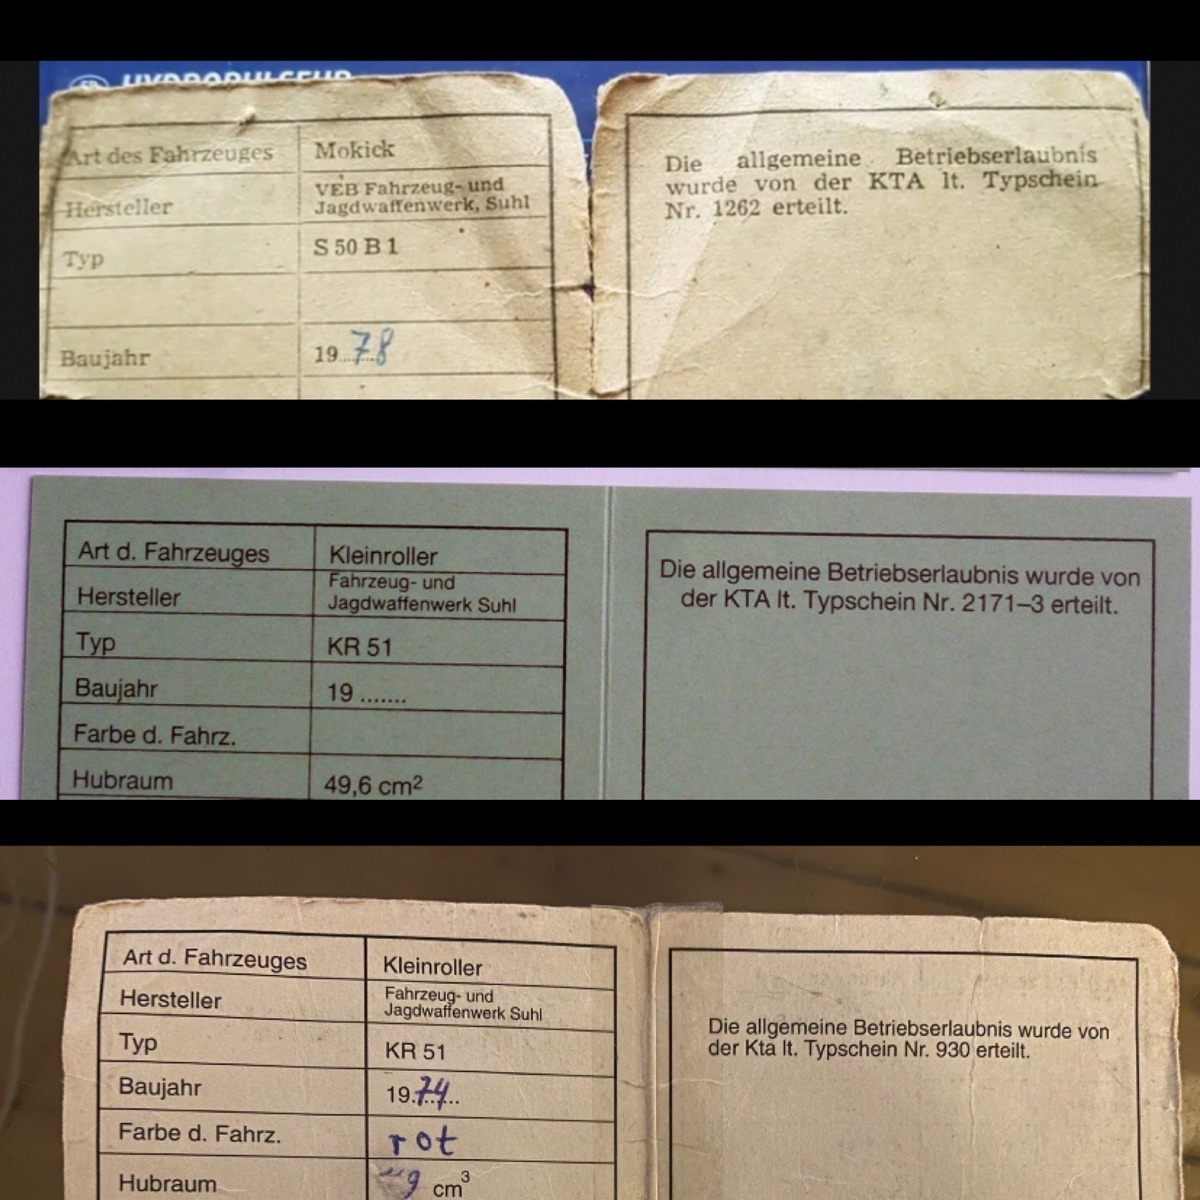 Art des Fahrzeuges Mokick
Hersteller VEB Fahrzeug- und
Jagdwaffenwerk, Suhl
Typ S 50 B 1
Baujahr 19...78
Die allgemeine Betriebserlaubnis
wurde von der KTA lt. Typschein
Nr. 1262 erteilt.
Art d. Fahrzeuges Kleinroller
Hersteller Fahrzeug- und
Jagdwaffenwerk Suhl
Typ KR 51
Baujahr 19 .......
Farbe d. Fahrz.
Hubraum 49,6 cm²
Die allgemeine Betriebserlaubnis wurde von
der KTA lt. Typschein Nr. 2171–3 erteilt.
Art d. Fahrzeuges Kleinroller
Hersteller Fahrzeug- und
Jagdwaffenwerk Suhl
Typ KR 51
Baujahr 19.74..
Farbe d. Fahrz. rot
Hubraum cm³
Die allgemeine Betriebserlaubnis wurde von
der Kta lt. Typschein Nr. 930 erteilt.